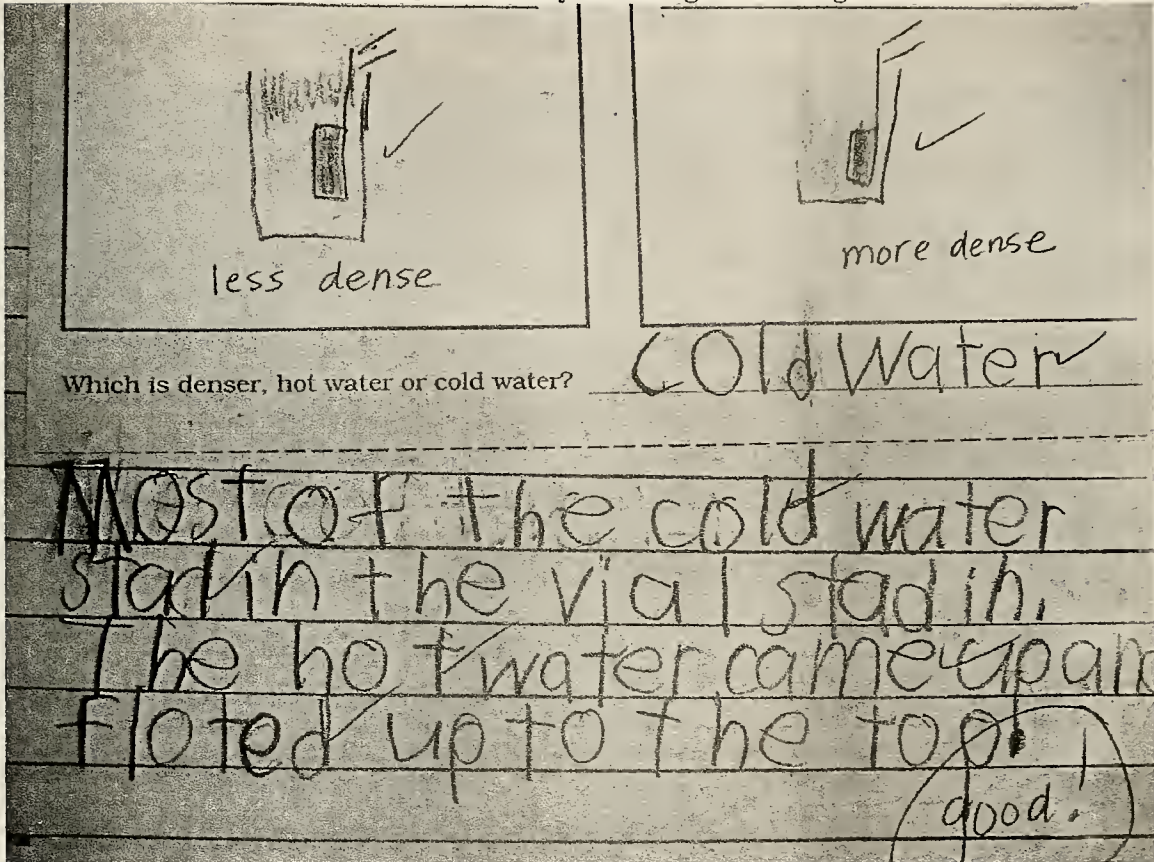 less dense
more dense
Which is denser, hot water or cold water? cold water
Most of the cold water
stad in the vial stad in.
The hot water came up an
floted up to the top.
good!